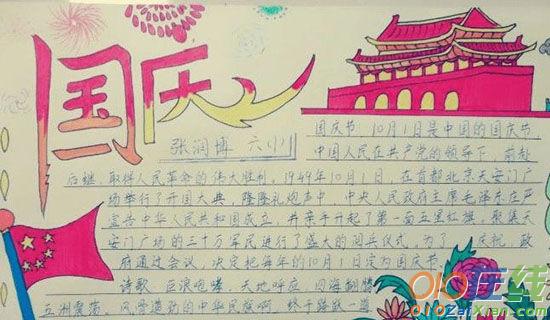 国庆
张润博 六(1)
国庆节，10月1日是中国的国庆节，
中国人民在共产党的领导下，前赴
后继，取得人民革命的伟大胜利，1949年10月1日，在首都北京天安门广
场举行了开国大典，隆隆礼炮声中，中央人民政府主席毛泽东庄严
宣告中华人民共和国成立，并亲手升起了第一面五星红旗，聚集天
安门广场的三十万军民进行了盛大的阅兵仪式，为了庆祝，政
府通过会议，决定把每年的10月1日定为国庆节。
诗歌，巨浪咆哮，天地呼应，四海翻腾
五洲震荡，风雷激励的中华民族啊，终于
在线
ZaiXian.com